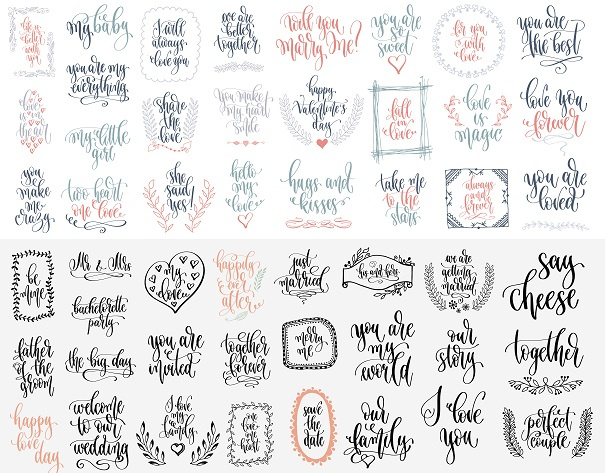 life
is better
with you
my baby
I will
always
love you
we are
better
together
will you
marry me!
you are
so
sweet
for you
with
love
you are
the best
you are my
everything
love
is in
the air
share
the
love
you make
my heart
smile
happy
Valentine's
day
fall
in love
love is
magic
love you
forever
my little
girl
you
make
me
crazy
two heart
one love
she
said
yes!
hello
my
love
hugs and
kisses
take me
to the
stars
always
and
forever
you are
loved
be
mine
Mr & Mrs
my
love
happily
ever
after
just
married
his and hers
we are
getting
married
say
cheese
bachelorette
party
father
of the
groom
the big day
you are
invited
together
forever
marry
me
you are
my
world
our
story
together
happy
love day
welcome
to our
wedding
I love
my
family
one love
one
heart
save
the
date
our
family
I love
you
perfect
couple